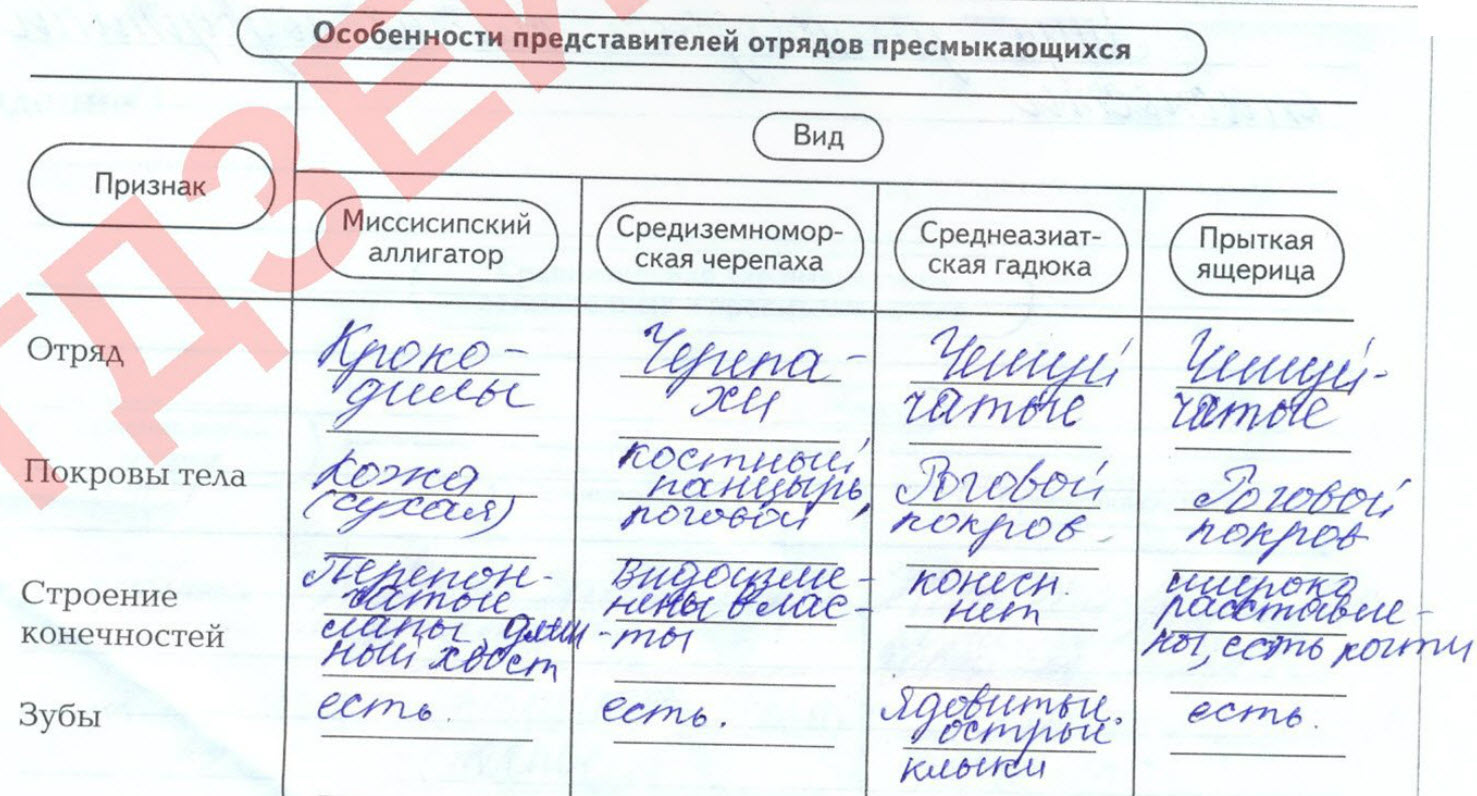 Особенности представителей отрядов пресмыкающихся
Вид
Признак
Миссисипский
аллигатор
Средиземномор-
ская черепаха
Среднеазиат-
ская гадюка
Прыткая
ящерица
Отряд
Кроко-
дилы
Черепа-
хи
Чешуй
чатые
Чешуй-
чатые
Покровы тела
Кожа
(сухая)
костный
панцырь,
роговой
Роговой
покров
Роговой
покров
Строение
конечностей
Перепон-
чатые
лапы, длин-
ный хвост
Видоизме-
нены в лас-
ты
конечн.
нет
широко
расставле-
ны, есть когти
Зубы
есть.
есть.
Ядовитые.
острые
клыки
есть.
ГДЗ